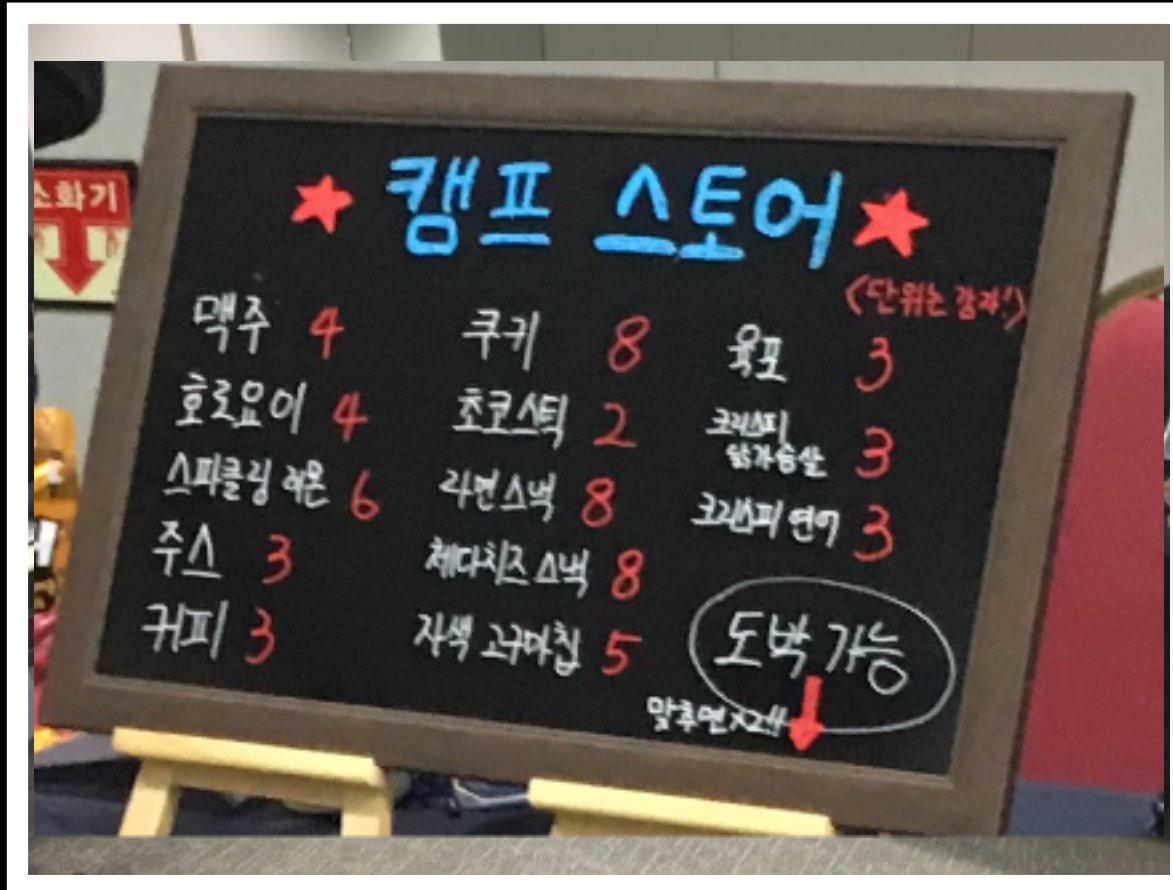 소화기
캠프 스토어
<단위는 감자!>
맥주 4
호로요이 4
스파클링 레몬 6
주스 3
커피 3
쿠키 8
초코스틱 2
라면스낵 8
체다치즈 스낵 8
자색 고구마칩 5
육포 3
크리스피
닭가슴살 3
크리스피 연어 3
도박 가능
맞추면 x2!!